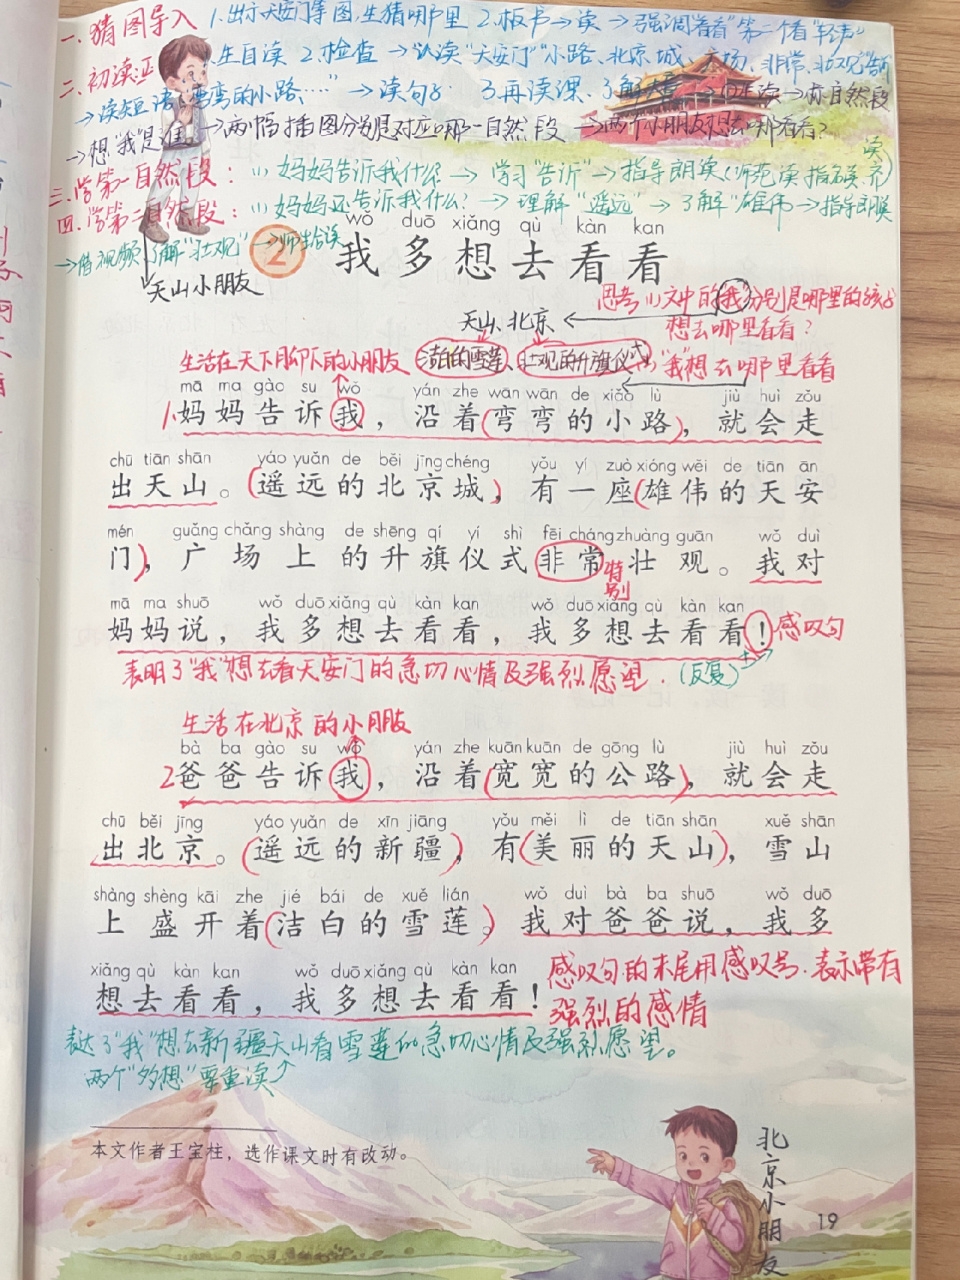 一、猜图导入 1.出示天安门等图,生猜哪里 2.板书→读→强调"看看"第二个"看"轻声
二、初读 1.生自读 2.检查→认读"天安门""小路、北京城、广场、非常、壮观"等
→读短语"弯弯的小路、……"→读句子 3.再读课、了解 读→标自然段
→想"我"是谁→两幅插图分别是对应哪一自然段→两个小朋友想去哪看看?
三、学第一自然段:(1)妈妈告诉我什么?→学习"告诉"→指导朗读(师范读 指名读、齐读)
四、学第二自然段:(1)妈妈还告诉我什么?→理解"遥远"→了解"雄伟"→指导朗读
→借视频了解"壮观"→师生合读
wǒ duō xiǎng qù kàn kan
2 我多想去看看
天山小朋友
思考(1)文中的"我"分别是哪里的孩子
天山、北京 想去哪里看看?
生活在天山脚下的小朋友 洁白的雪莲、壮观的升旗仪式 "我"想去哪里看看
mā ma gào su wǒ yán zhe wān wān de xiǎo lù jiù huì zǒu
1.妈妈告诉我,沿着(弯弯的小路),就会走
chū tiān shān yáo yuǎn de běi jīng chéng yǒu yí zuò xióng wěi de tiān ān
出天山。(遥远的北京城),有一座(雄伟的天安
mén guǎng chǎng shàng de shēng qí yí shì fēi cháng zhuàng guān wǒ duì
门),广场上的升旗仪式非常壮观。我对
特别
mā ma shuō wǒ duō xiǎng qù kàn kan wǒ duō xiǎng qù kàn kan
妈妈说,我多想去看看,我多想去看看! 感叹句
表明了"我"想去看天安门的急切心情及强烈愿望.(反复)
生活在北京的小朋友
bà ba gào su wǒ yán zhe kuān kuān de gōng lù jiù huì zǒu
2爸爸告诉我,沿着(宽宽的公路),就会走
chū běi jīng yáo yuǎn de xīn jiāng yǒu měi lì de tiān shān xuě shān
出北京。(遥远的新疆),有(美丽的天山),雪山
shàng shèng kāi zhe jié bái de xuě lián wǒ duì bà ba shuō wǒ duō
上盛开着(洁白的雪莲)。我对爸爸说,我多
xiǎng qù kàn kan wǒ duō xiǎng qù kàn kan
想去看看,我多想去看看!
感叹句的末尾用感叹号.表示带有
强烈的感情
表达了"我"想去新疆天山看雪莲的急切心情及强烈愿望。
两个"多想"要重读
本文作者王宝柱,选作课文时有改动。
北京小朋友
19